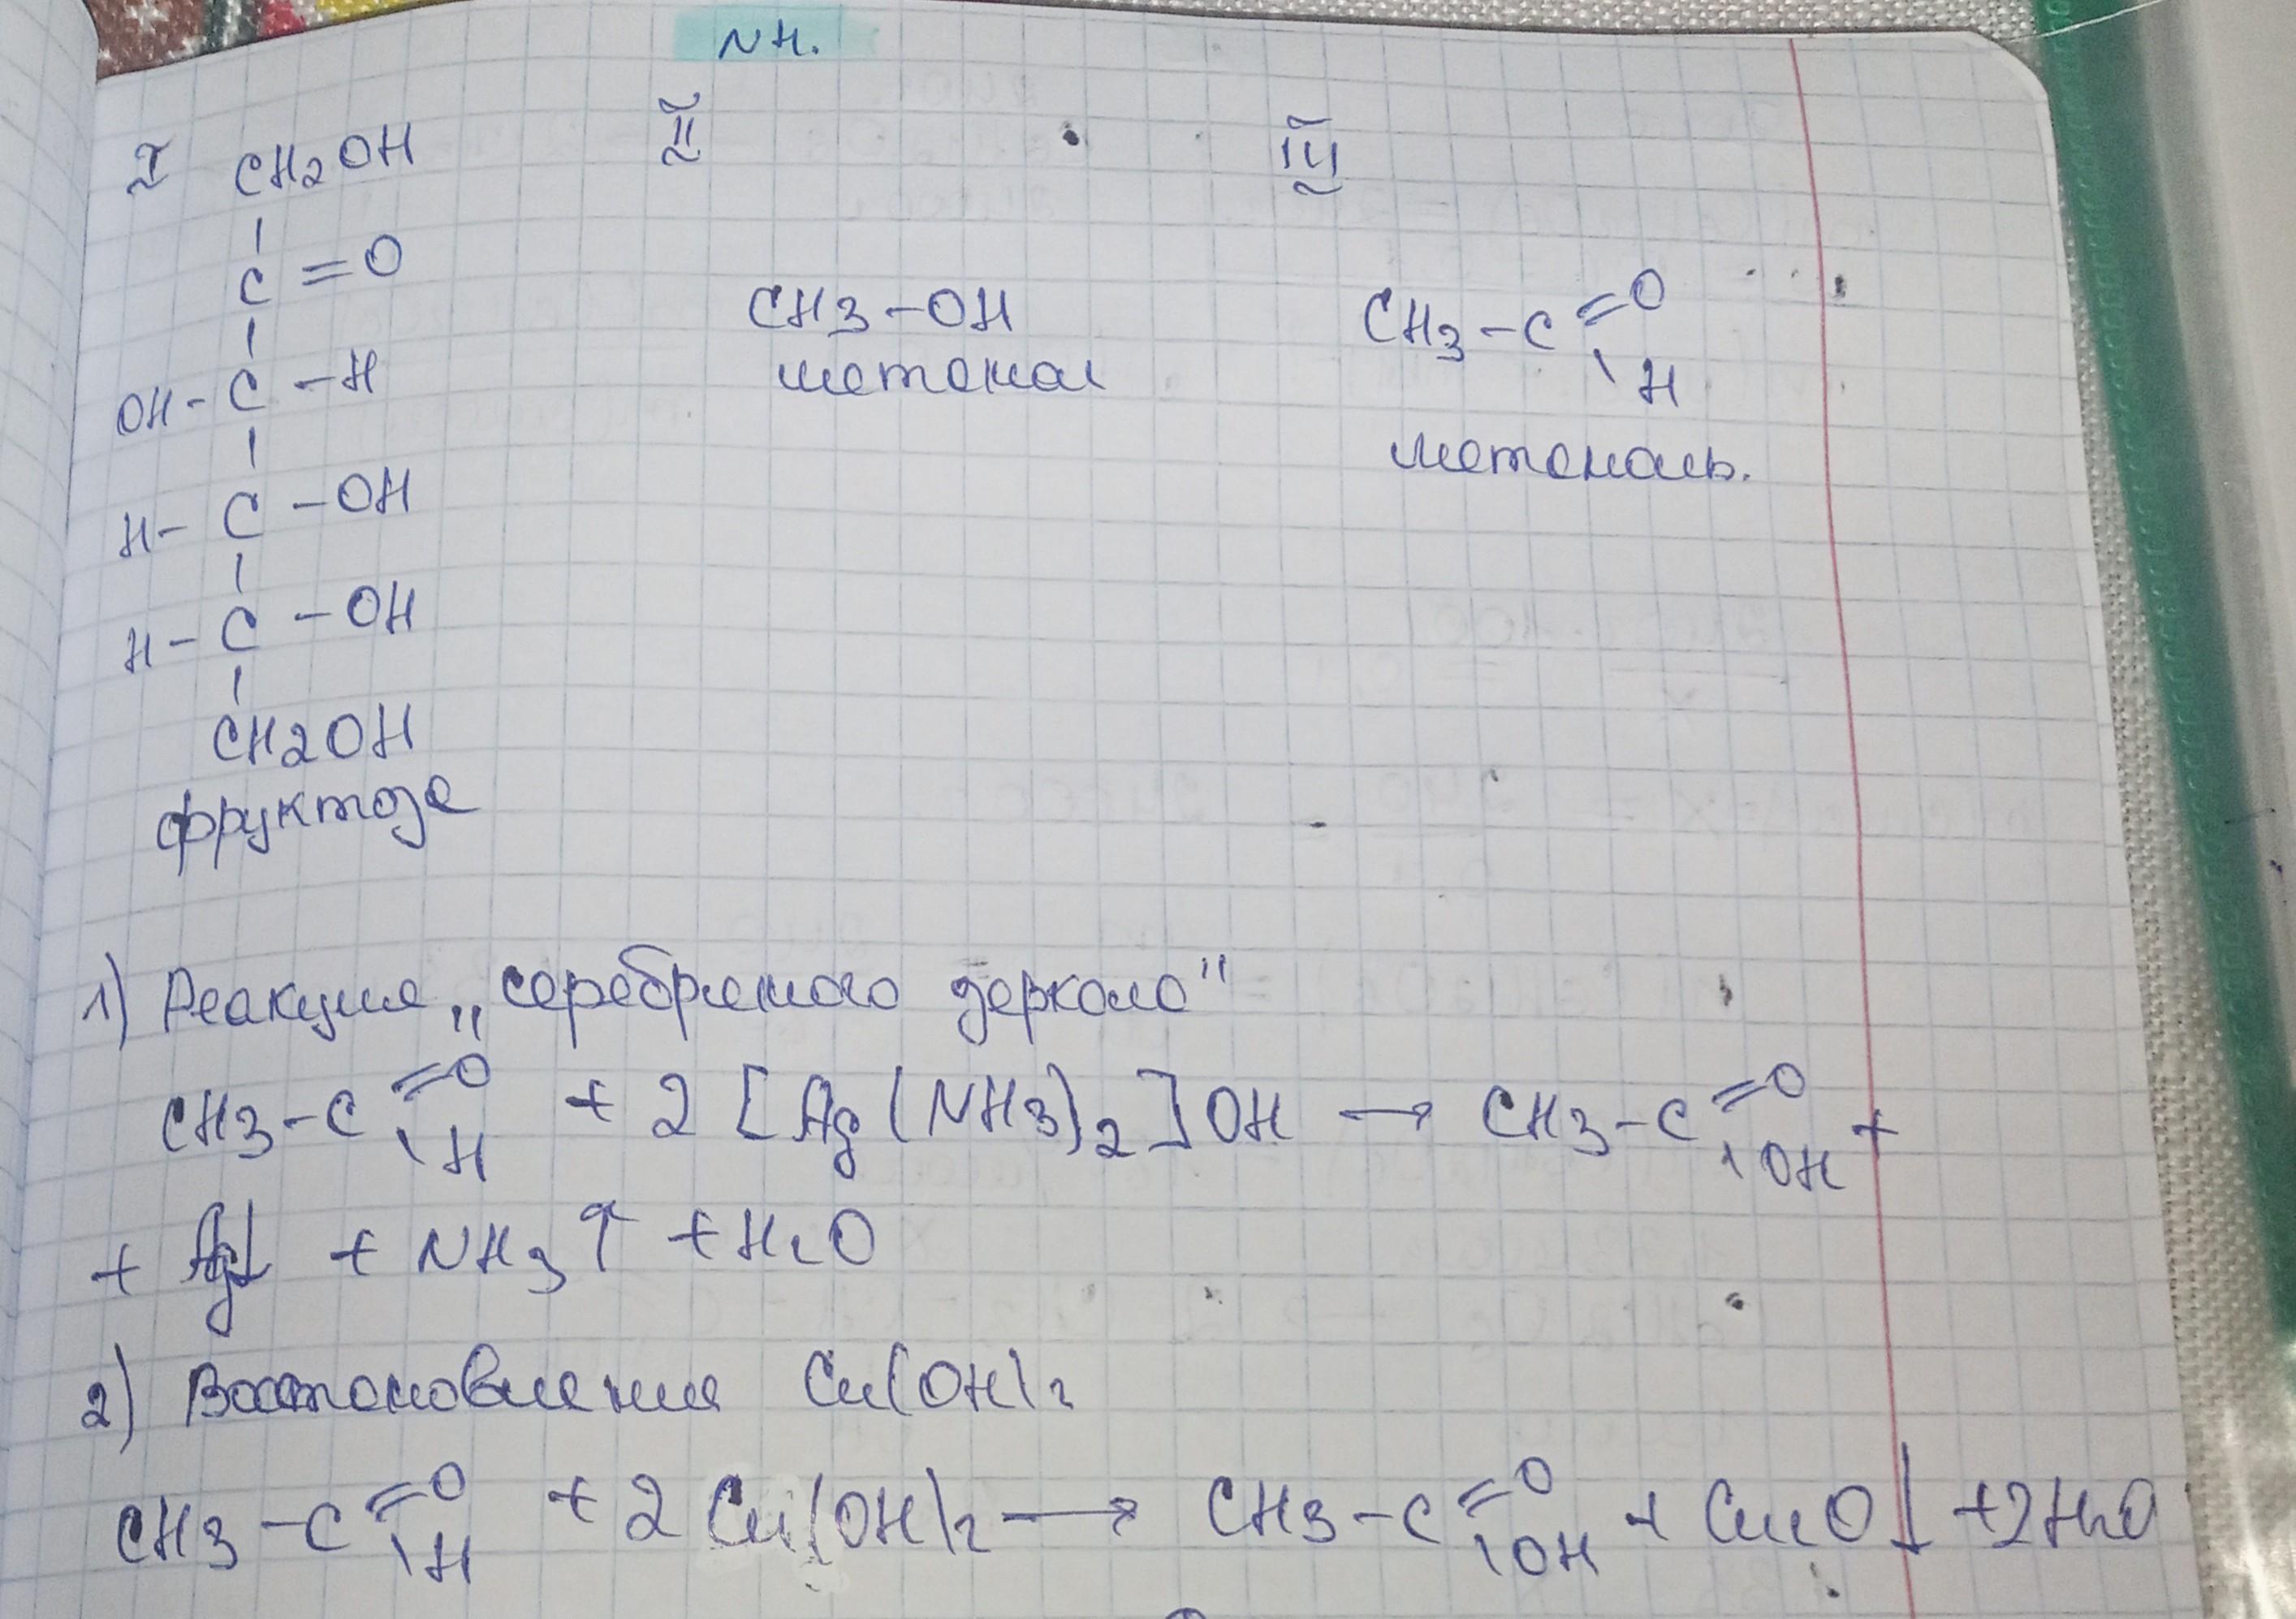 NH.
I
CH2OH
|
C=O
|
OH-C-H
|
H-C-OH
|
H-C-OH
|
CH2OH
фруктоза
II
CH3-OH
метанол
III
CH3-C=O
\H
метаналь.
1) Реакция „серебряного зеркало"
CH3-C=O\H + 2[Ag(NH3)2]OH → CH3-C=O\OH +
+ Ag↓ + NH3↑ + H2O
2) Востановления Cu(OH)2
CH3-C=O\H + 2Cu(OH)2 → CH3-C=O\OH + Cu2O↓ + 2H2O